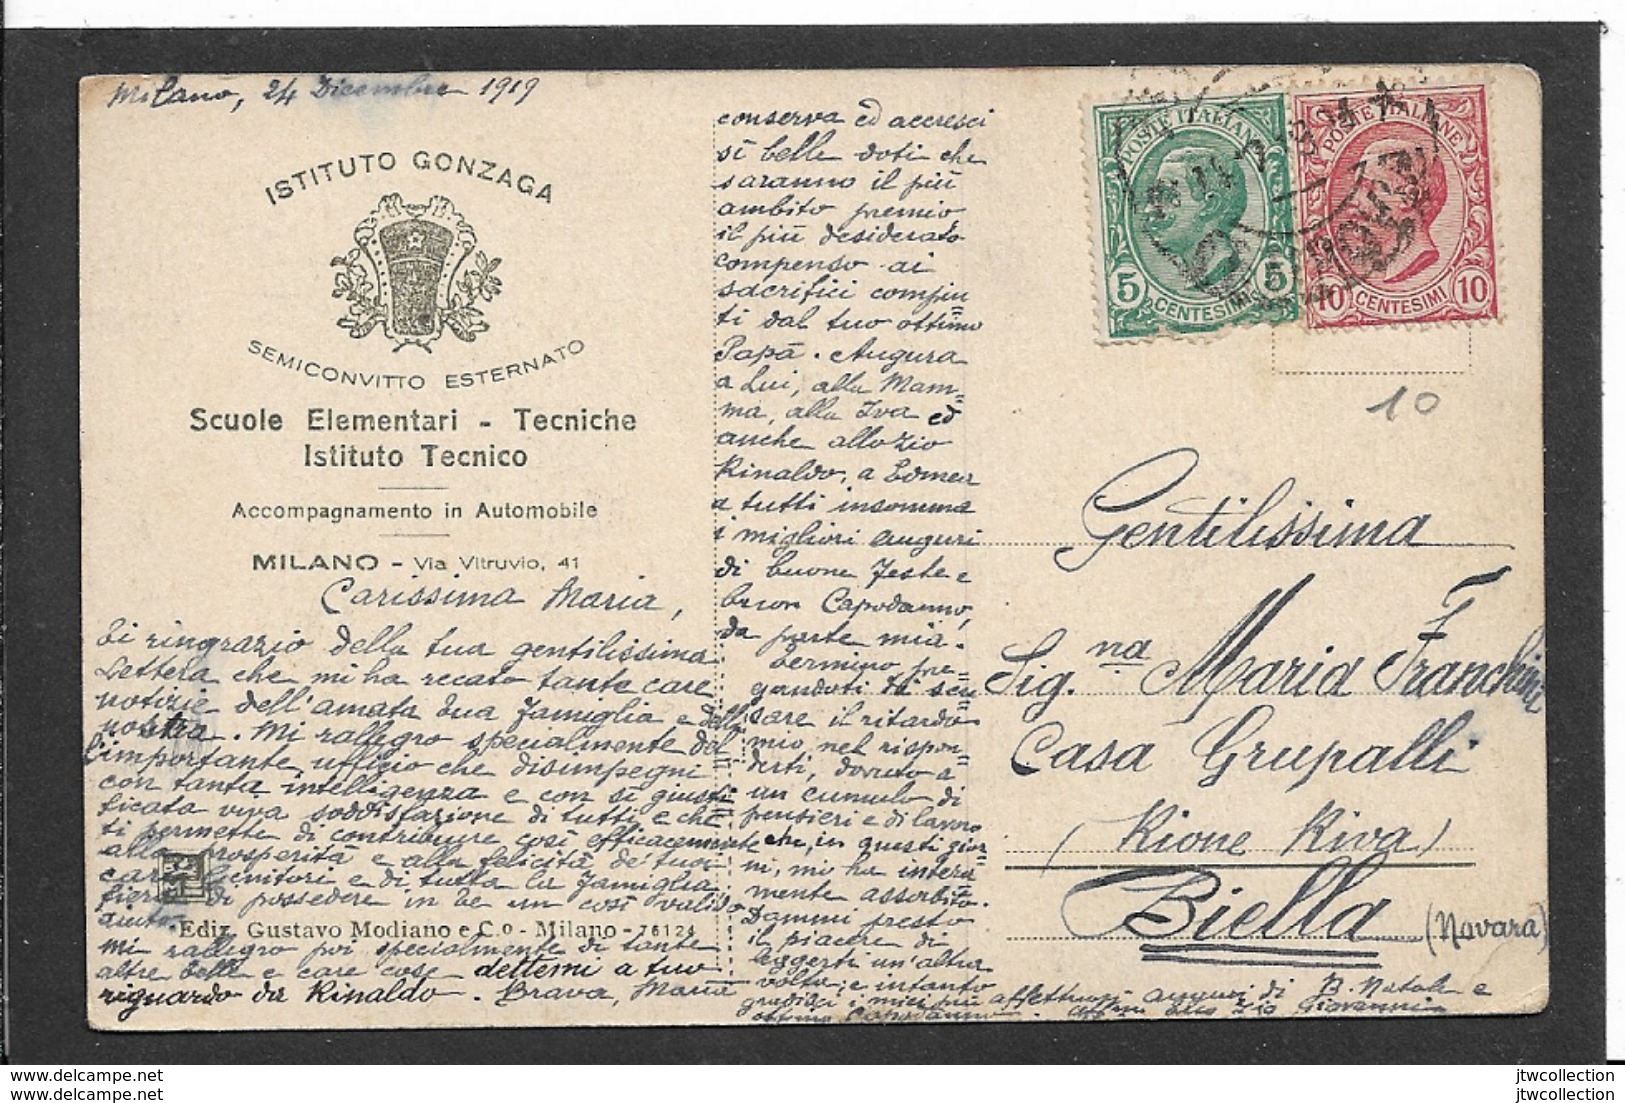 Milano, 24 Dicembre 1919
ISTITUTO GONZAGA
SEMICONVITTO ESTERNATO
Scuole Elementari - Tecniche
Istituto Tecnico
Accompagnamento in Automobile
MILANO - Via Vitruvio, 41
Carissima Maria,
Ti ringrazio della tua gentilissima
lettera che mi ha recato tante care
notizie dell'amata tua famiglia e della
nostra. Mi rallegro specialmente del-
l'importante ufficio che disimpegni
con tanta intelligenza e con sì giusti=
ficata viva soddisfazione di tutti e che
ti permette di contribuire così efficacemente
alla prosperità e alla felicità de' tuoi
cari Genitori e di tutta la famiglia
fieri di possedere in te un così valido
aiuto.
Ediz. Gustavo Modiano e C.o - Milano - 76124
Mi rallegro poi specialmente di tante
altre belle e care cose dettemi a tuo
riguardo da Rinaldo. Brava, Maria
conserva ed accresci
sì belle doti che
saranno il più
ambito premio
il più desiderato
compenso ai
sacrifici compiu
ti dal tuo ottimo
Papà. Augura
a Lui, alla Mam-
ma, alla Iva ed
anche allo zio
Rinaldo, a Edmea
a tutti insomma
i migliori auguri
di buone Feste e
buon Capodanno,
da parte mia.
Termino pre-
gandoti di scu
sare il ritardo
mio nel rispon-
derti, dovuto a
un cumulo di
pensieri e di lavoro
che, in questi gior-
ni, mi ha intera
mente assorbito.
Dammi presto
il piacere di
leggerti un'altra
volta; e intanto
gradisci i miei più affettuosi auguri di B. Natale e
ottimo Capodanno. Zio Giovanni
POSTE ITALIANE
5 CENTESIMI 5
POSTE ITALIANE
10 CENTESIMI 10
10
Gentilissima
Sig.na Maria Franchini
Casa Grupalli
(Rione Riva)
Biella (Novara)
www.delcampe.net
www.delcampe.net
jtwcollection
jtwcollection